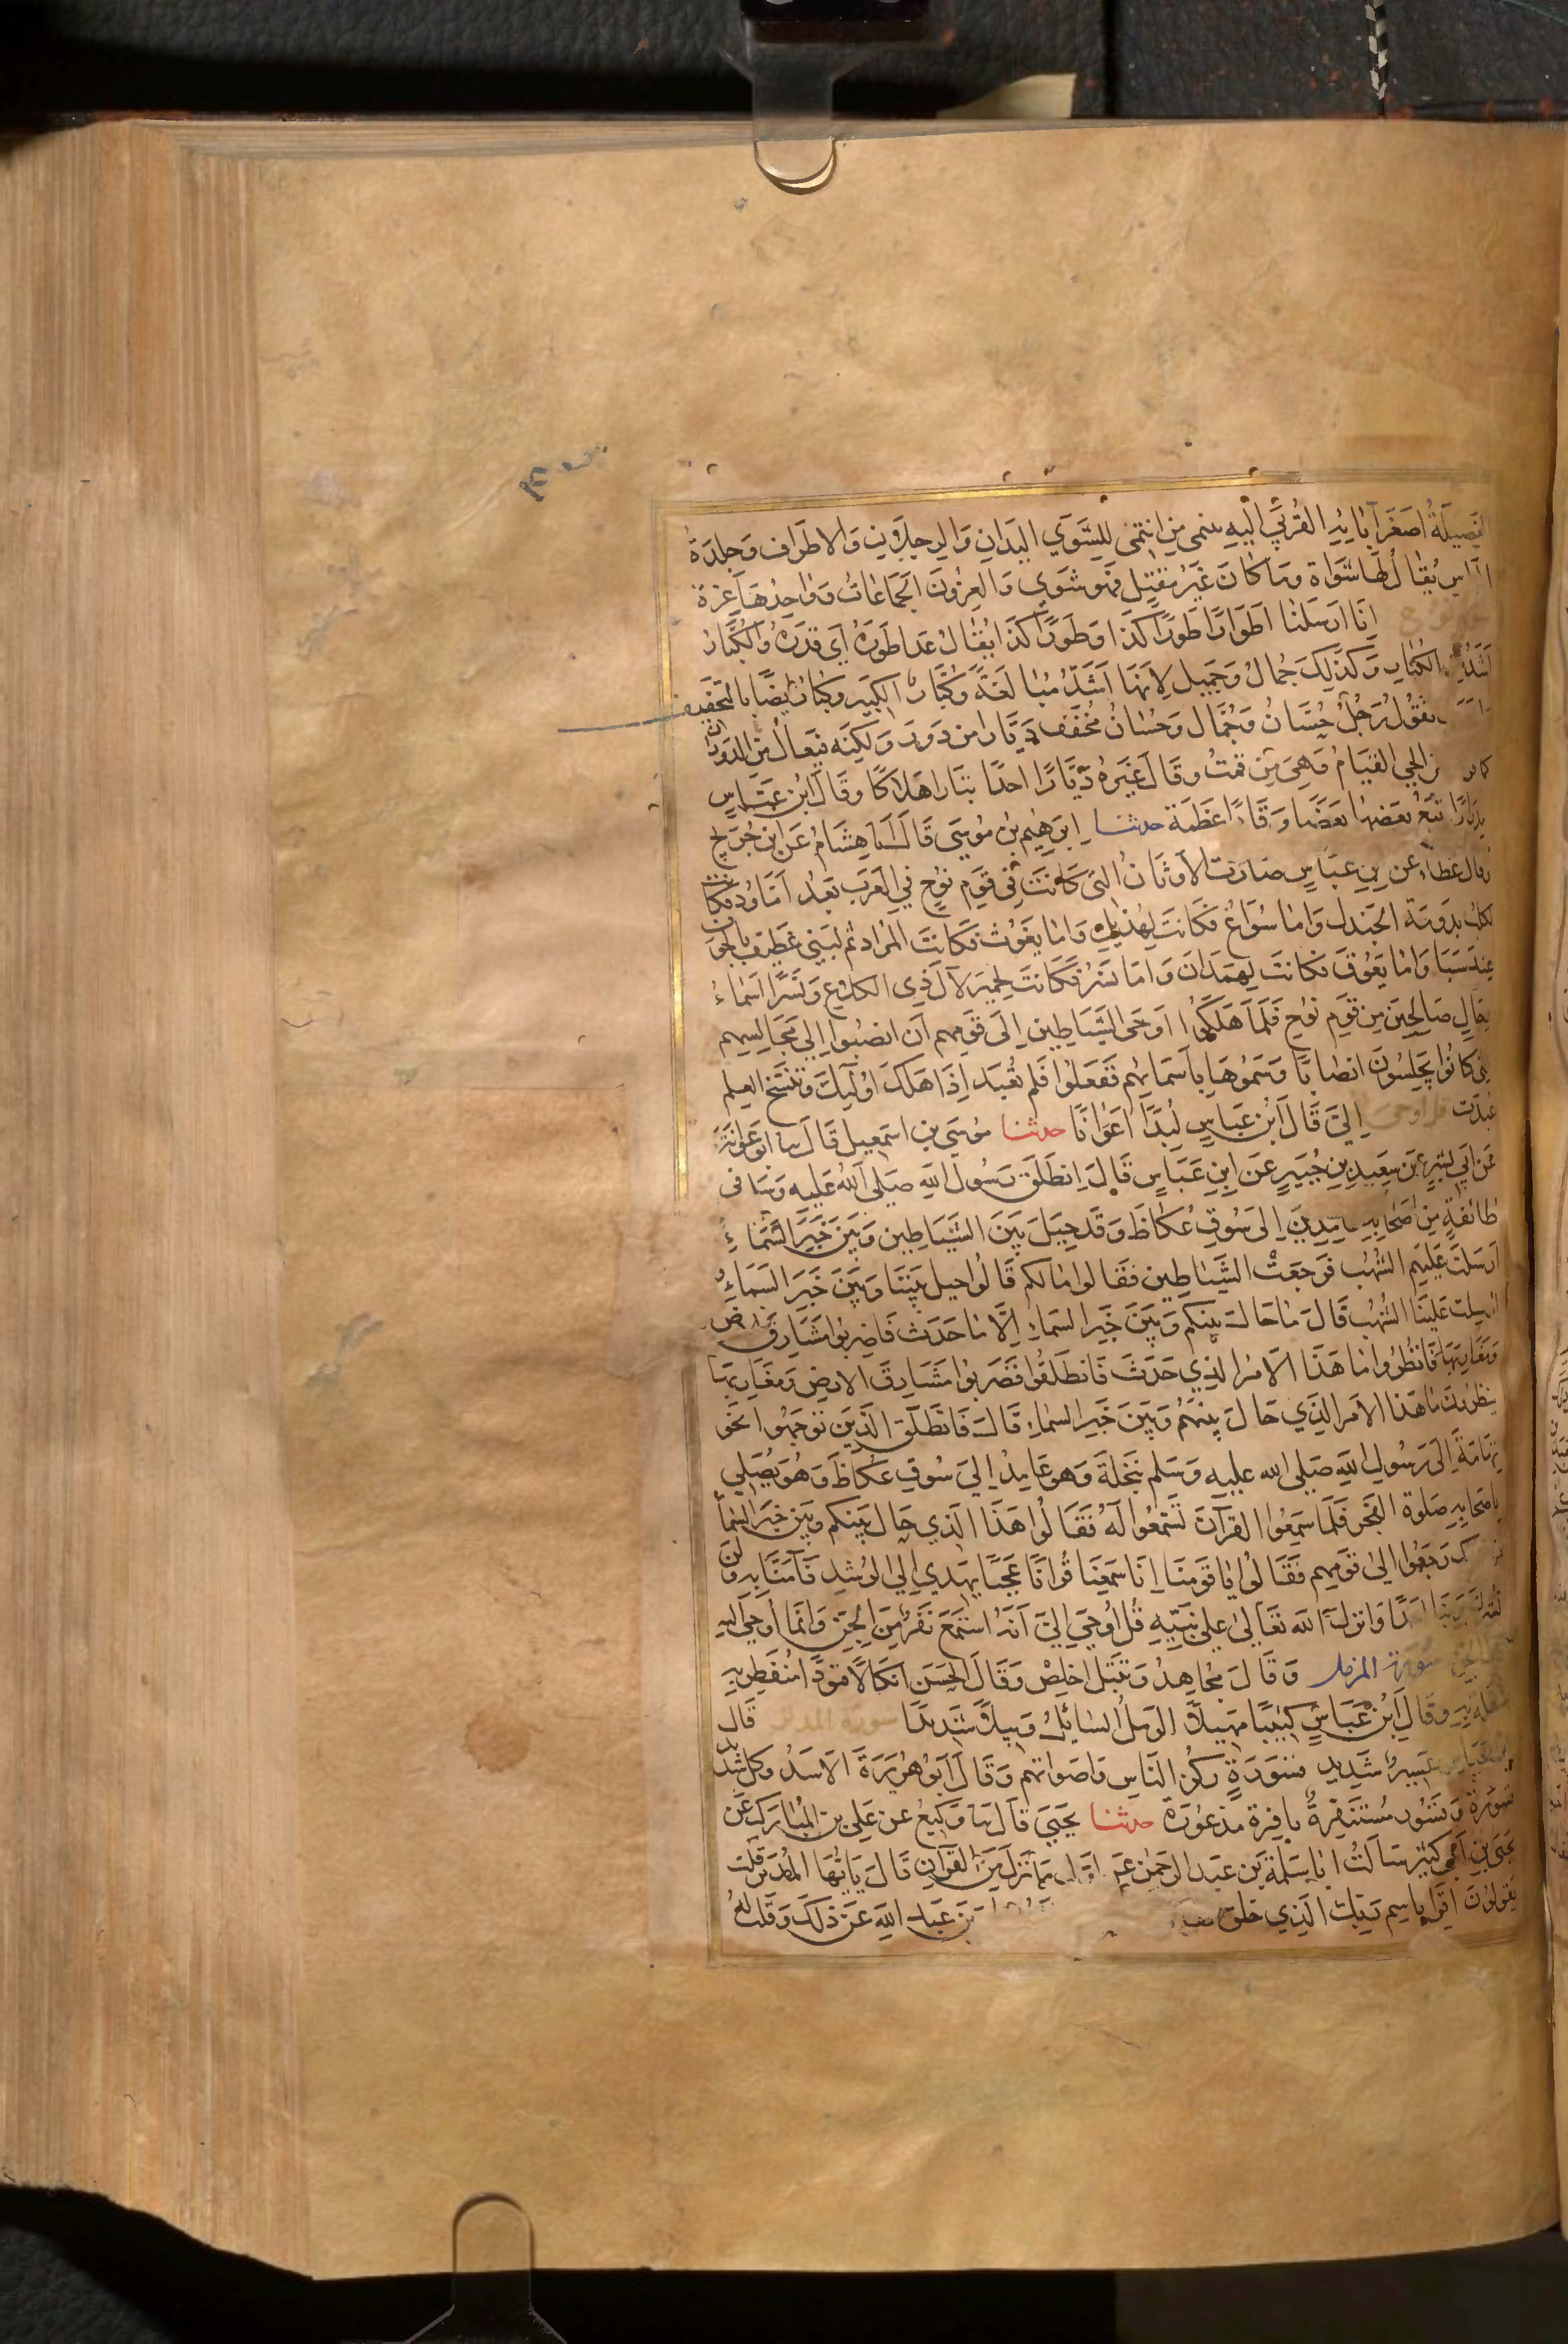 الفصيلة اصغر آبائه القربي اليه ينمي من انتمى للشوي اليدان والرجلان والاطراف وجلدة
الراس يقال لها شواة وما كان غير مقتل فهو شوي والعزون الجماعات وواحدها عزة
انا ارسلنا اطوارا طورا كذا وطورا كذا يقال عدا طوره اي قدره والكبار
اشد الكبار وكذلك جمال وجميل لانها اشد مبالغة وكبار الكبير وكبارا ايضا بالتخفيف
تقول رجل حسان وجمال وحسان مخفف ديارا من دور ولكنه فيعال من الدوران
كما الحي القيام وهي من قمت وقال غيره ديارا احدا تبارا هلاكا وقال ابن عباس
مدرارا تتبع بعضها بعضا وقارا عظمة حدثنا ابرهيم بن موسى قال انا هشام عن ابن جريج
وقال عطاء عن بن عباس صارت الاوثان التي كانت في قوم نوح في العرب بعد اما ود فكانت
لكلب بدومة الجندل واما سواع فكانت لهذيل واما يغوث فكانت المراد ثم لبني غطيف بالجوف
عند سبا واما يعوق فكانت لهمدان واما نسر فكانت لحمير لآل ذي الكلاع ونسرا اسماء
رجال صالحين من قوم نوح فلما هلكوا اوحى الشياطين الى قومهم ان انصبوا الى مجالسهم
التي كانوا يجلسون انصابا وسموها باسمائهم ففعلوا فلم تعبد اذا هلك اولئك وتنسخ العلم
عبدت قل اوحي الي قال ابن عباس لبدا اعوانا حدثنا موسى بن اسمعيل قال ثنا ابو عوانة
عن ابي بشر عن سعيد بن جبير عن ابن عباس قال انطلق رسول الله صلى الله عليه وسلم في
طائفة من اصحابه عامدين الى سوق عكاظ وقد حيل بين الشياطين وبين خبر السماء
ارسلت عليهم الشهب فرجعت الشياطين فقالوا مالكم قالوا حيل بيننا وبين خبر السماء
ارسلت علينا الشهب قال ما حال بينكم وبين خبر السماء الا ما حدث فاضربوا مشارق الارض
ومغاربها فانظروا ما هذا الامر الذي حدث فانطلقوا فضربوا مشارق الارض ومغاربها
ينظرون ما هذا الامر الذي حال بينهم وبين خبر السماء قال فانطلق الذين توجهوا نحو
تهامة الى رسول الله صلى الله عليه وسلم بنخلة وهو عامد الى سوق عكاظ وهو يصلي
باصحابه صلوة الفجر فلما سمعوا القرآن تسمعوا له فقالوا هذا الذي حال بينكم وبين خبر السماء
رجعوا الى قومهم فقالوا يا قومنا انا سمعنا قرانا عجبا يهدي الى الرشد فآمنا به ولن
نشرك بربنا احدا وانزل الله تعالى على نبيه قل اوحي الي انه استمع نفر من الجن وانما اوحي اليه
قول الجن سورة المزمل وقال مجاهد وتبتل اخلص وقال الحسن انكالا قيودا منفطر به
مثقلة به وقال ابن عباس كثيبا مهيلا الرمل السائل وبيلا شديدا سورة المدثر قال
ابن عباس عسير شديد قسورة ركز الناس واصواتهم وقال ابو هريرة الاسد وكل شديد
قسورة وقسور مستنفرة نافرة مذعورة حدثنا يحيى قال ثنا وكيع عن علي بن المبارك عن
يحيى بن ابي كثير سالت ابا سلمة بن عبد الرحمن عن اول ما نزل من القرآن قال يا ايها المدثر قلت
يقولون اقرا باسم ربك الذي خلق بن عبد الله عن ذلك وقلت له